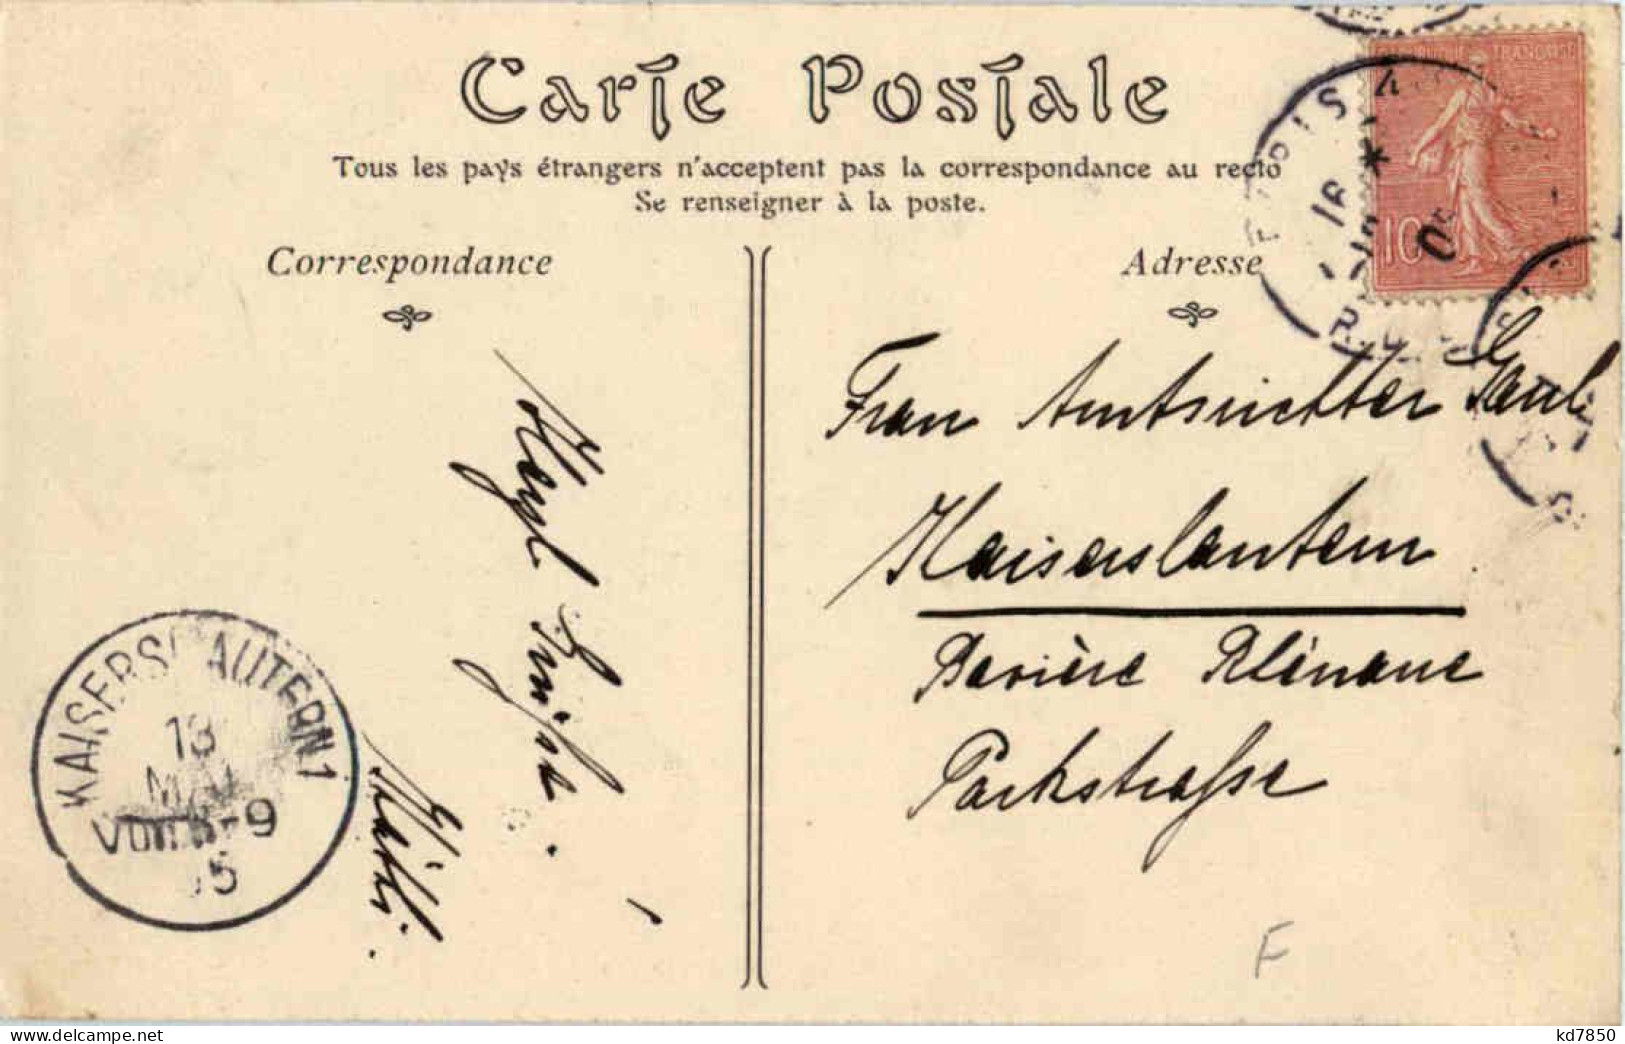 Carte Postale
Tous les pays étrangers n'acceptent pas la correspondance au recto
Se renseigner à la poste.
Correspondance
Adresse
RÉPUBLIQUE FRANÇAISE
10
PARIS
Frau Amtsrichter
Kaiserslautern
Bavière Rhénane
Parkstraße
Herzl. Grüße
Willi.
KAISERSLAUTERN 1
13
MAI
VORM 8-9
05
F
kd7850